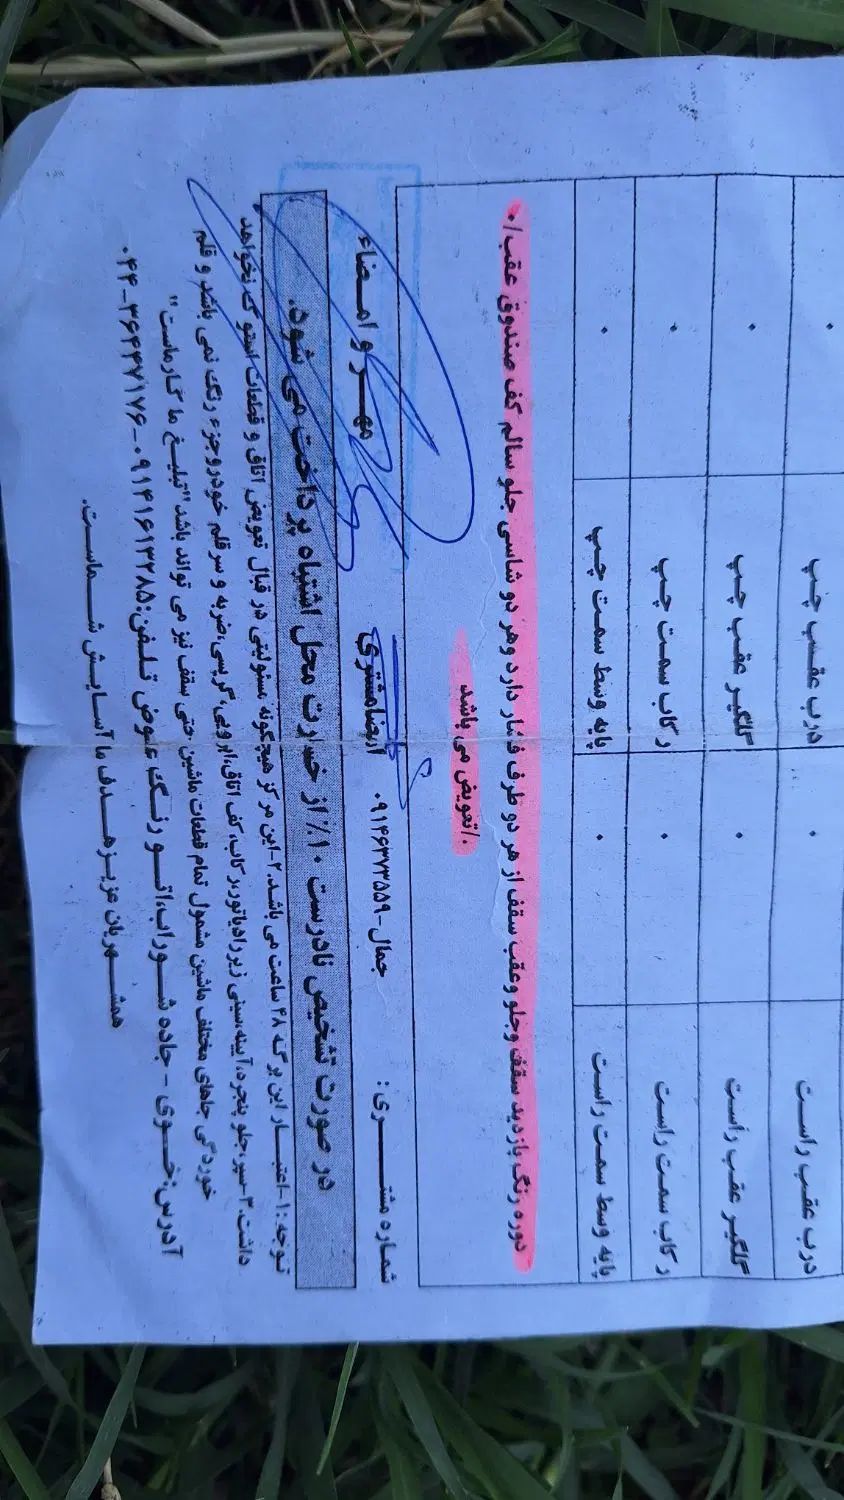 درب عقب راست • درب عقب چپ •
گلگیر عقب راست • گلگیر عقب چپ •
رکاب سمت راست • رکاب سمت چپ •
پایه وسط سمت راست • پایه وسط سمت چپ •
دوره رنگ بازدید سقف وجلو وعقب سقف از هر دو طرف فشار دارد وهر دو شاسی جلو سالم کف صندوق عقب/.
/.تعویض می باشد
شماره مشتری: جمال-۰۹۱۴۶۳۷۳۵۵۹ امضا مشتری مهر و امضاء
در صورت تشخیص نادرست ۱۰٪ از خسارت محل اشتباه پرداخت می شود.
توجه:۱-اعتبار این برگه ۴۸ ساعت می باشد.۲-این مرکز هیچگونه مسئولیتی در قبال تعویض اتاق و قطعات استوک نخواهد
داشت.۳-سپر،جلو پنجره،آیینه،سینی زیر رادیاتور،رکاب،کف اتاق،ابرویی،گریسی،ضربه و سر قلم خودرو جزء رنگ نمی باشد و قلم
خوردگی جاهای مختلف ماشین مشمول تمام قطعات ماشین حتی سقف نیز می تواند باشد "تبلیغ ما کارماست"
آدرس:خوی - جاده شوراب،اتو رنگ عوض تلفن:۰۹۱۴۱۶۱۳۲۸۵-۰۴۴-۳۶۴۳۷۱۷۶
همشهریان عزیز هدف ما آسایش شماست.